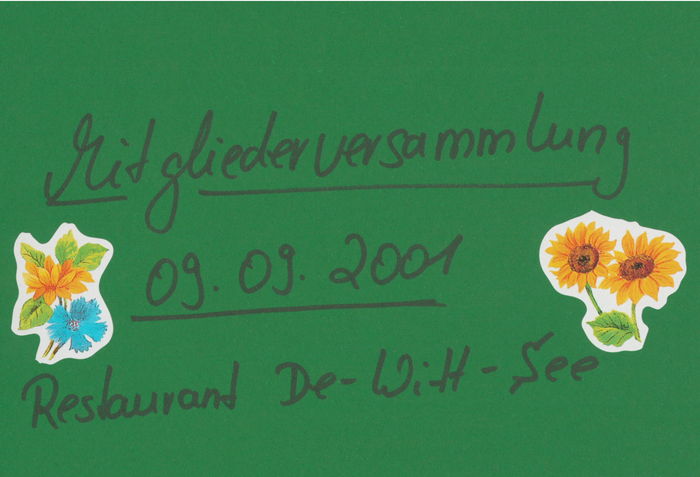 Mitgliederversammlung
09.09.2001
Restaurant De-Witt-See